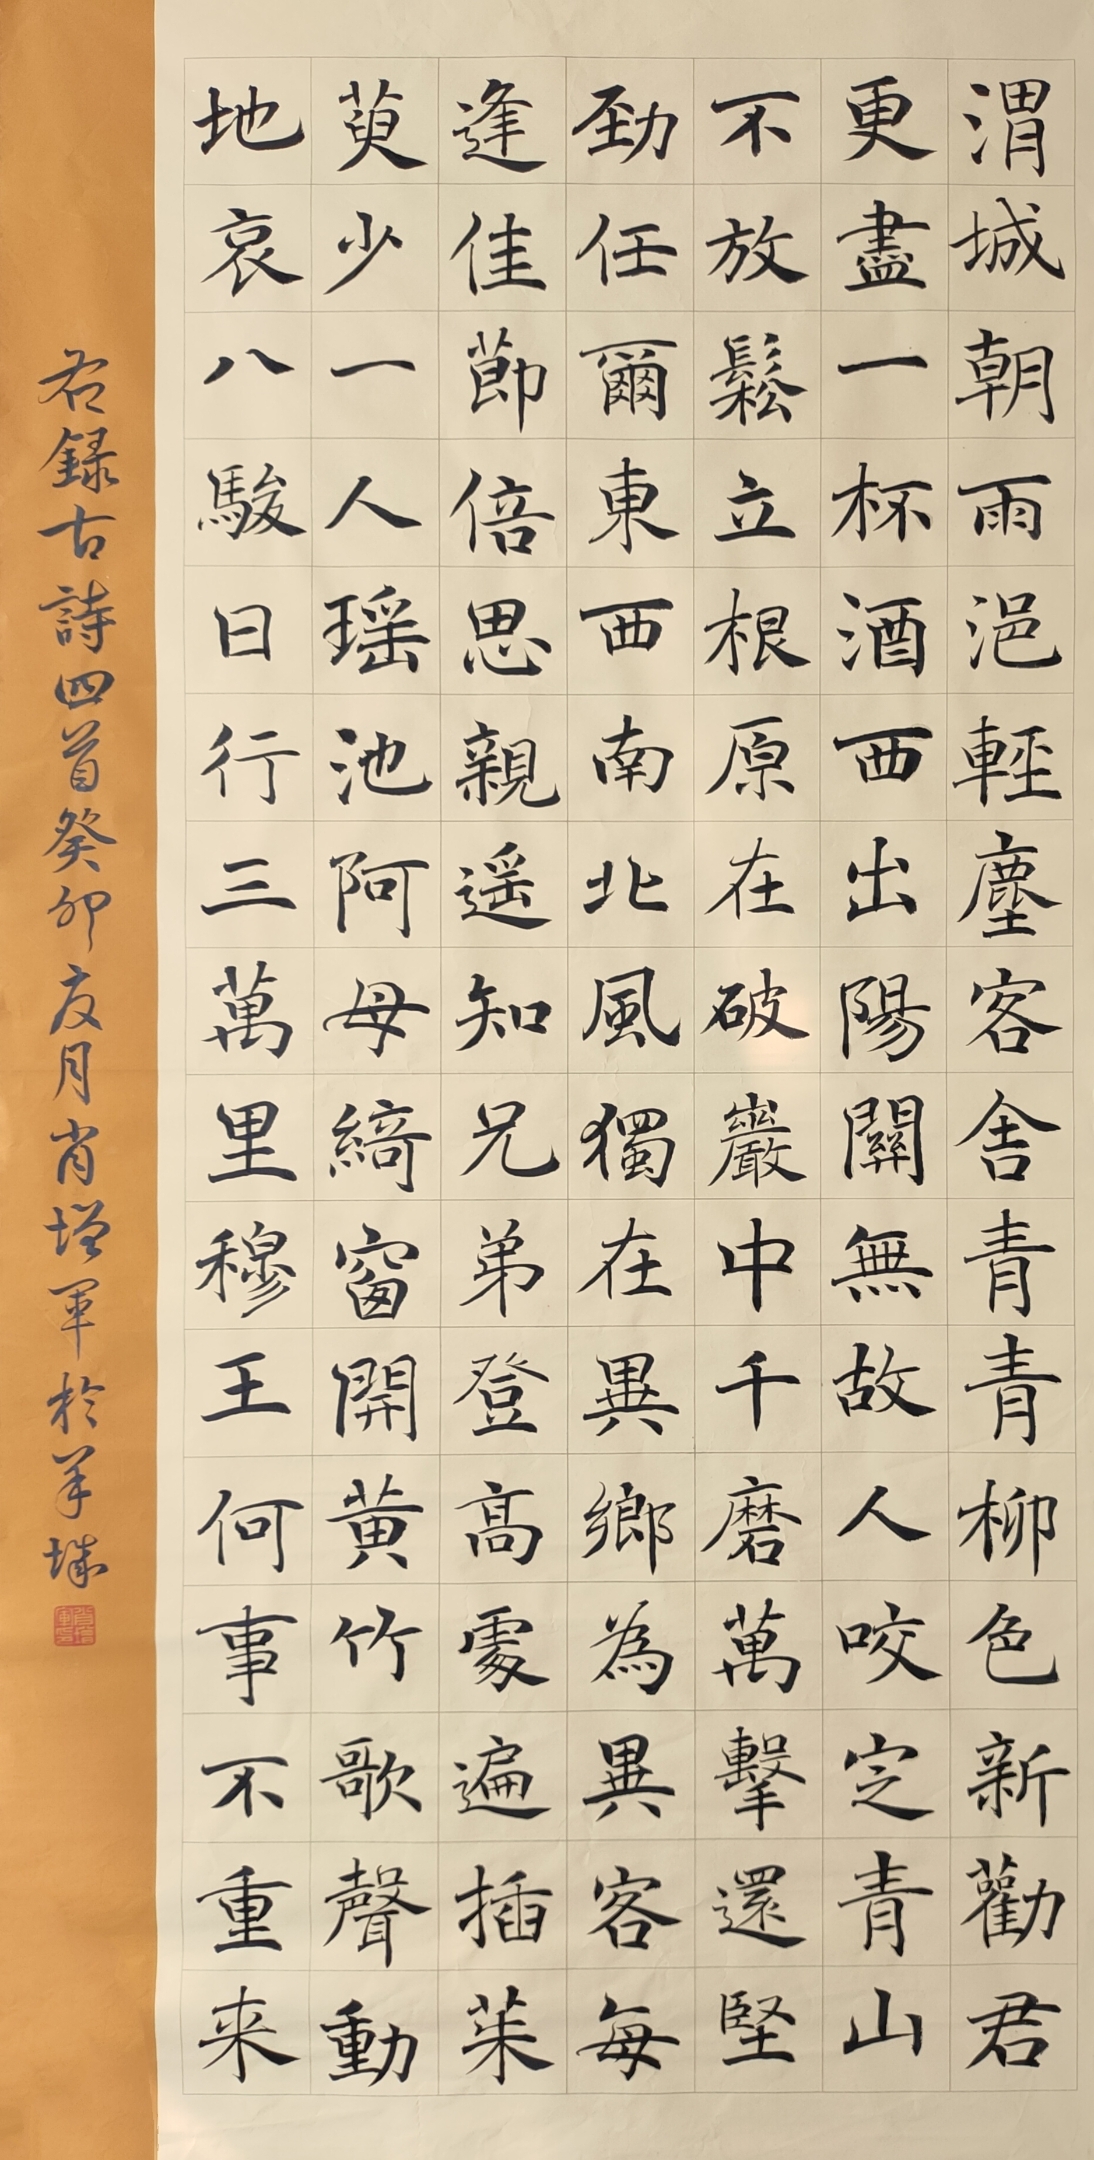 渭城朝雨浥輕塵客舎青青柳色新勸君
更盡一杯酒西出陽關無故人咬定青山
不放鬆立根原在破巖中千磨萬擊還堅
勁任爾東西南北風獨在異鄉為異客每
逢佳節倍思親遥知兄弟登高處遍插茱
萸少一人瑶池阿母綺窗開黄竹歌聲動
地哀八駿日行三萬里穆王何事不重来
右録古詩四首癸卯友月肖增軍於羊城